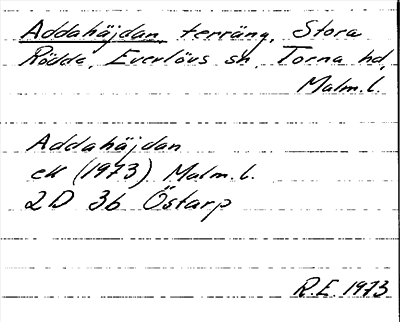 Addahäjdan, terräng, Stora
Rödde, Everlövs sn, Torna hd,
Malm.l.
Addahäjdan
ek (1973) Malm.l.
2D 3b Östarp
R.E. 1973